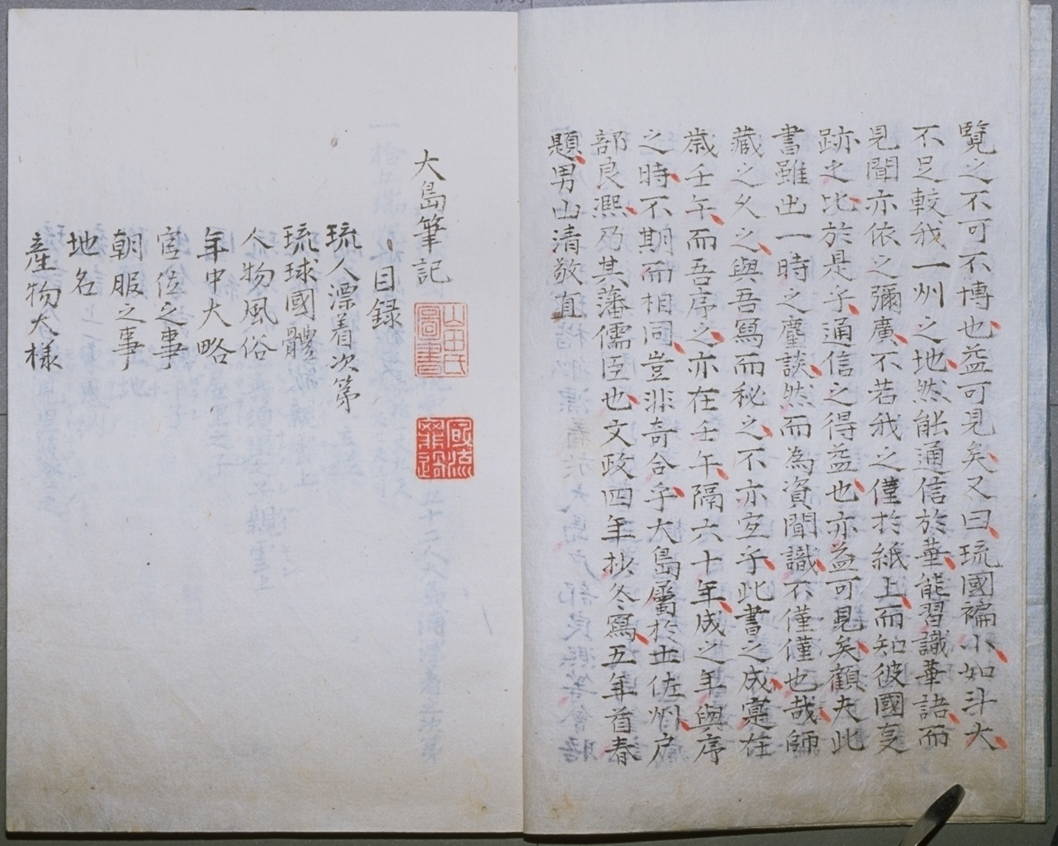 覽之不可不博也益可見矣又曰琉國褊小如斗大
不足較我一州之地然能通信於華能習識華語而
見聞亦依之彌廣不若我之僅於紙上而知彼國之
跡之比於是乎通信之得益也亦益可見矣顧夫此
書雖出一時之塵談然而為資聞識不僅僅也哉師
藏之久之與吾寫而秘之不亦宜乎此書之成稾在
歲壬午而吾序之亦在壬午隔六十年成之年與序
之時不期而相同豈非奇合乎大島屬於土佐州戶
部良凞乃其藩儒臣也文政四年抄冬寫五年首春
題男山清敬直
大島筆記
目錄
琉人漂着次第
琉球國體
人物風俗
年中大略
官位之事
朝服之事
地名
產物大樣
山田氏圖書